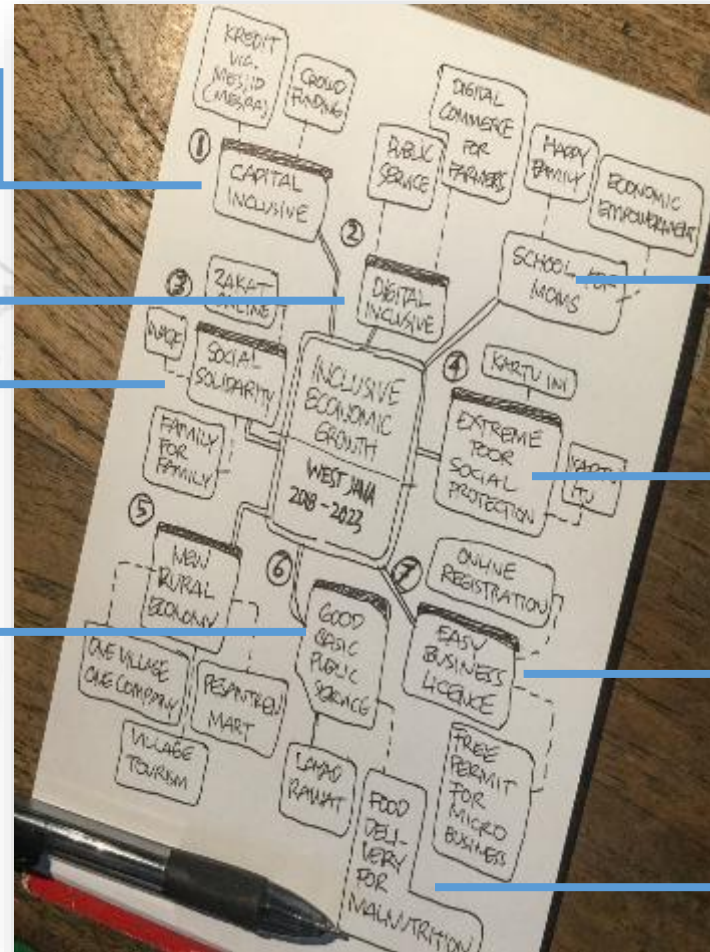 KREDIT
VIA
MESJID
(MESRA)
CROWD
FUNDING
①
CAPITAL
INCLUSIVE
DIGITAL
COMMERCE
FOR
FARMERS
PUBLIC
SERVICE
②
DIGITAL
INCLUSIVE
HAPPY
FAMILY
ECONOMIC
EMPOWERMENT
SCHOOL FOR
MOMS
③
ZAKAT
ONLINE
WAQF
SOCIAL
SOLIDARITY
FAMILY
FOR
FAMILY
INCLUSIVE
ECONOMIC
GROWTH
WEST JAVA
2018-2023
④
KARTU INI
EXTREME
POOR
SOCIAL
PROTECTION
KARTU
ITU
⑤
NEW
RURAL
ECONOMY
ONE VILLAGE
ONE COMPANY
PESANTREN
MART
VILLAGE
TOURISM
⑥
GOOD
BASIC
PUBLIC
SERVICE
RAWAT
FOOD
DELI-
VERY
FOR
MALNUTRITION
⑦
ONLINE
REGISTRATION
EASY
BUSINESS
LICENCE
FREE
PERMIT
FOR
MICRO
BUSINESS